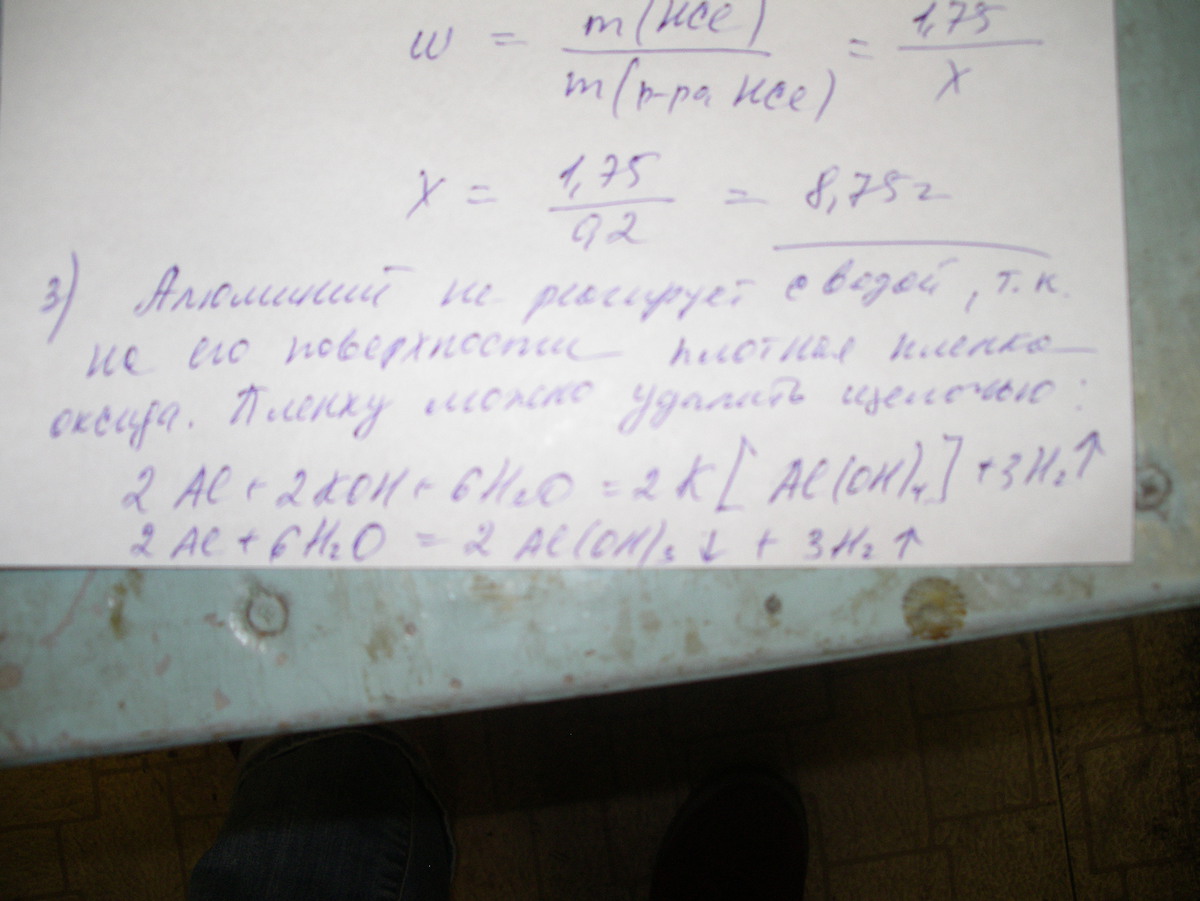 w = m(HCl) / m(р-ра HCl) = 1,75 / x
x = 1,75 / 0,2 = 8,75 г
3) Алюминий не реагирует с водой, т.к.
на его поверхности плотная пленка
оксида. Пленку можно удалить щелочью:
2 Al + 2KOH + 6H₂O = 2 K[Al(OH)₄] + 3H₂↑
2 Al + 6H₂O = 2 Al(OH)₃ ↓ + 3H₂ ↑